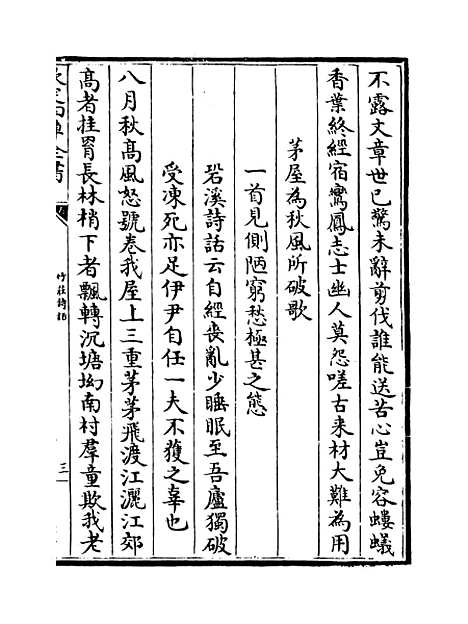 不露文章世已驚未辭剪伐誰能送苦心豈免容螻蟻
香葉終經宿鸞鳳志士幽人莫怨嗟古來材大難為用
茅屋為秋風所破歌
一首見側陋窮愁極甚之態
若溪詩話云自經喪亂少睡眠至吾廬獨破
受凍死亦足伊尹自任一夫不獲之辜也
八月秋高風怒號卷我屋上三重茅茅飛渡江灑江郊
高者挂罥長林梢下者飄轉沉塘坳南村羣童欺我老
竹莊詩話